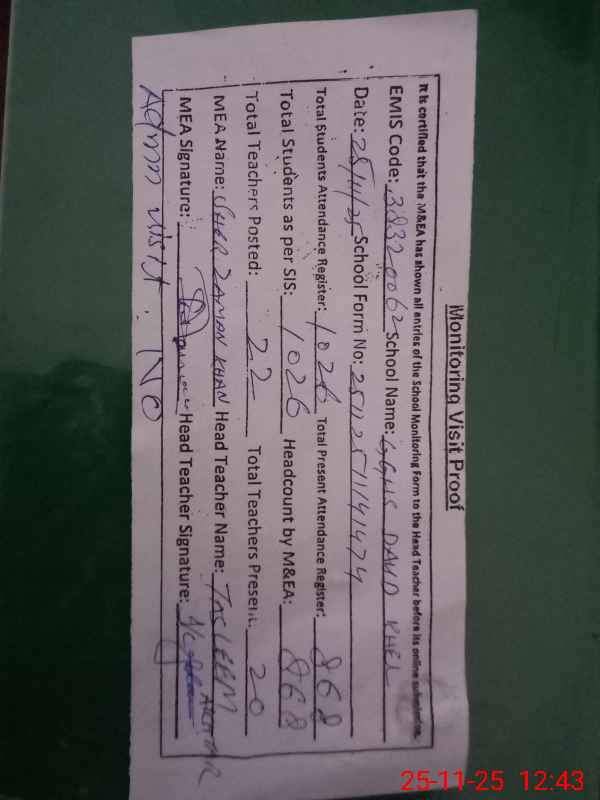 Monitoring Visit Proof
It is certified that the M&EA has shown all entries of the School Monitoring Form to the Head Teacher before its online submission.
EMIS Code: 38320062 School Name: GGHS DAUD KHEL
Date: 25/11/25 School Form No:
Total Students Attendance Register: 1026 Total Present Attendance Register: 868
Total Students as per SIS: 1026 Headcount by M&EA: 868
Total Teachers Posted: 22 Total Teachers Present: 20
MEA Name: SHER ZAMAN KHAN Head Teacher Name: TASLEEM AKHTAR
MEA Signature: Head Teacher Signature:
Admn visit. No
25-11-25 12:43